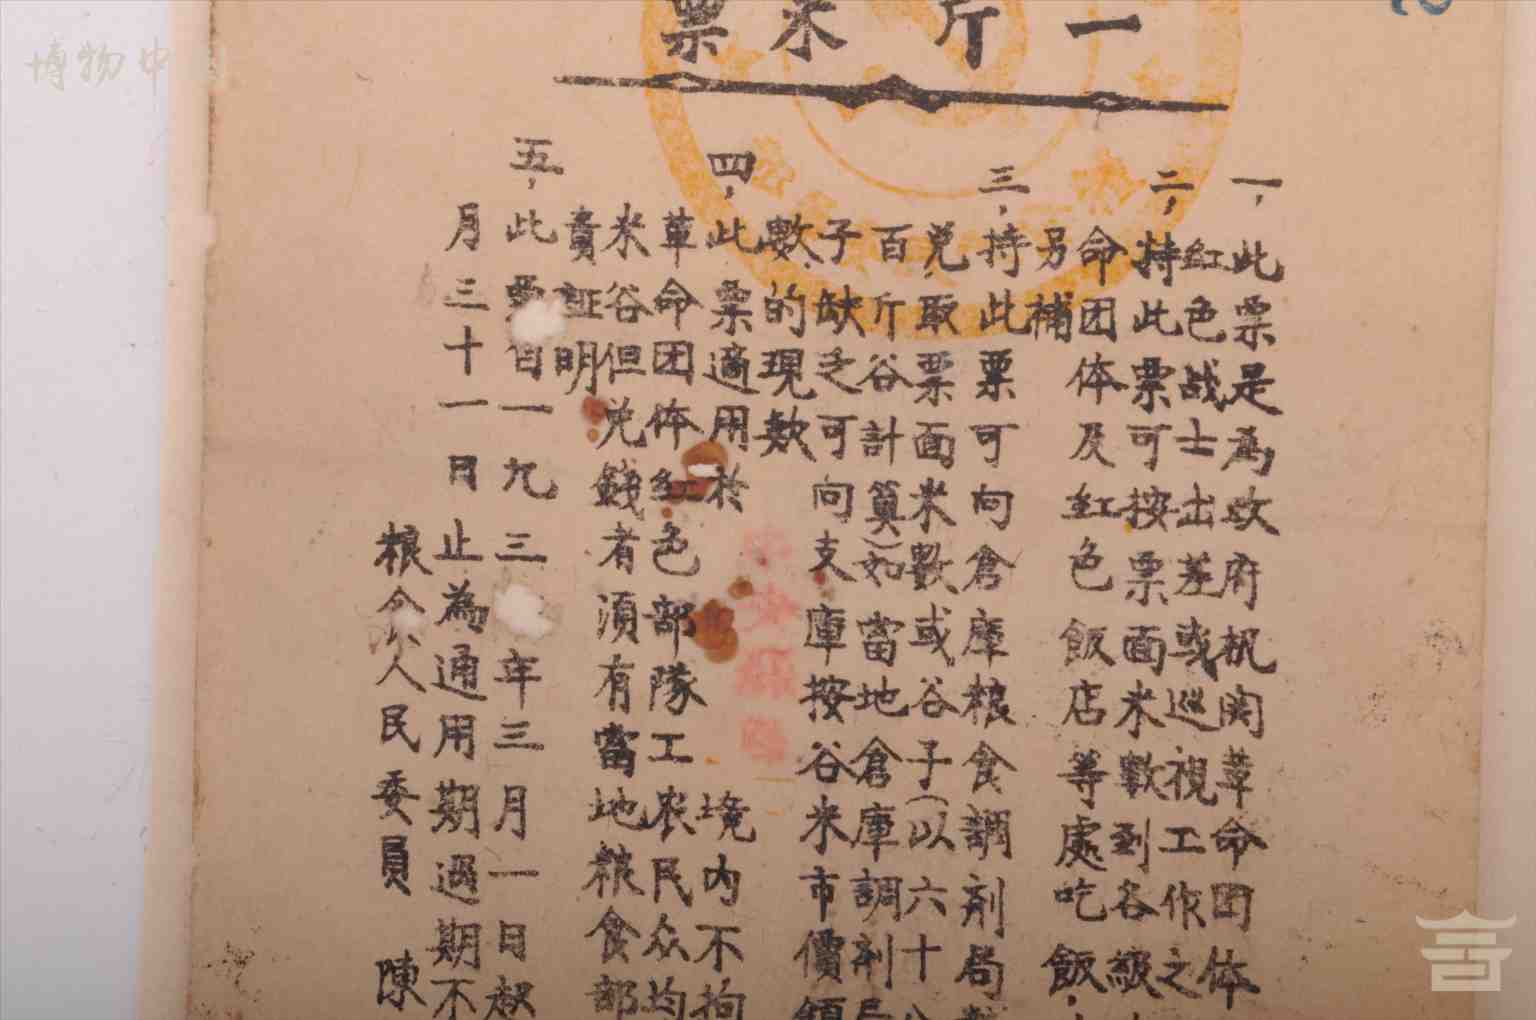 一斤米票
一，此票是為政府机関革命团体
红色战士出差或巡視工作之
二，持此票可按票面米數到各級
命团体及红色飯店等處吃飯，
另補
三，持此票可向倉庫粮食調剂局
兑取票面米數或谷子（以六十
百斤谷計算）如當地倉庫調剂局
子缺乏可向支庫按谷米市價領
數的現欵
四，此票適用於 境内不拘
革命团体红色部隊工农民众均
米谷但兑錢者須有當地粮食部
責証明
五，此票自一九三 年三月一日起
月三十一日止為通用期過期不
粮食人民委員 陳
博物中